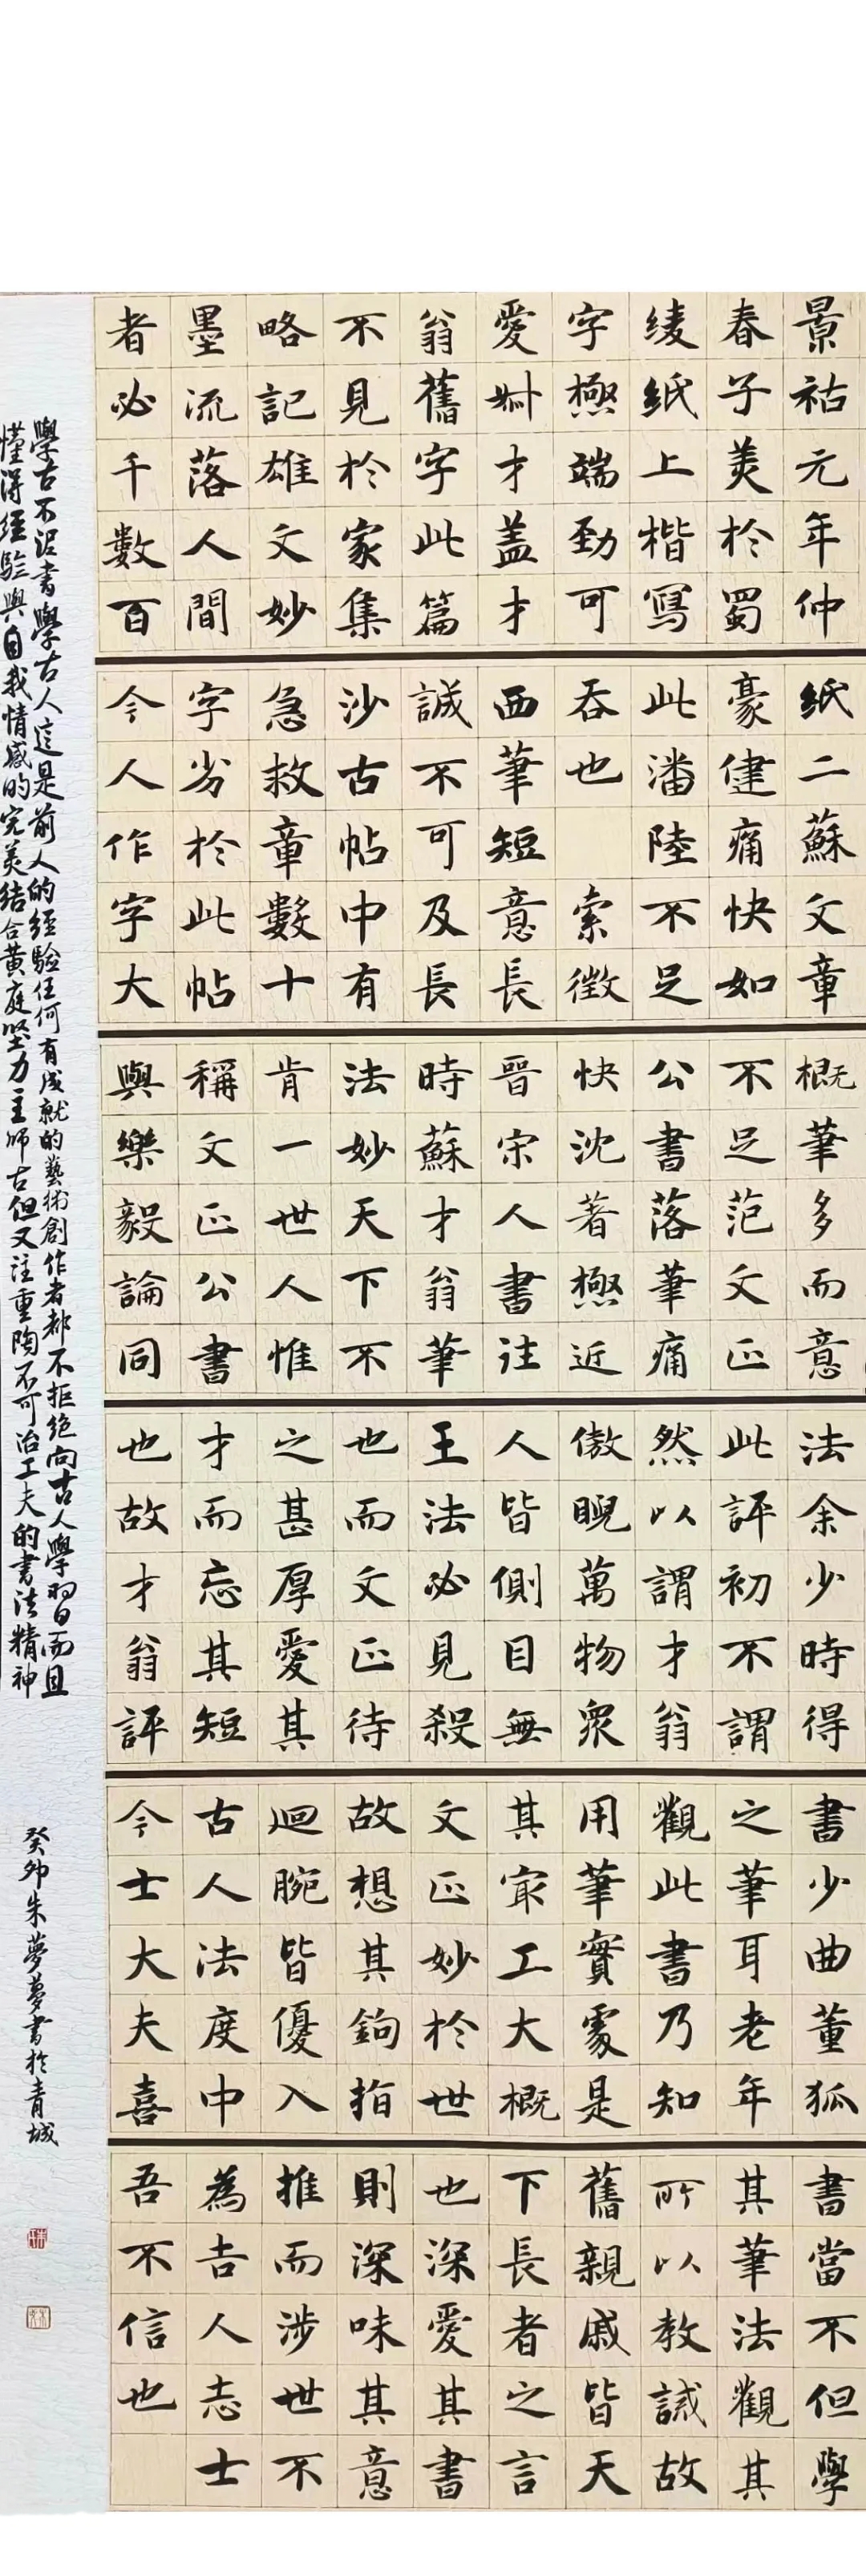 景祐元年仲
春子美於蜀
绫紙上楷寫
字極端劲可
愛 才盖才
翁舊字此篇
不見於家集
略記雄文妙
墨流落人間
者必千數百
紙二蘇文章
豪健痛快如
此潘陸不足
吞也 索徵
西筆短意長
誠不可及長
沙古帖中有
急救章數十
字劣於此帖
今人作字大
概筆多而意
不足范文正
公書落筆痛
快沈著極近
晉宋人書往
時蘇才翁筆
法妙天下不
肯一世人惟
稱文正公書
與樂毅論同
法余少時得
此評初不謂
然以謂才翁
傲睨萬物衆
人皆側目無
王法必見殺
也而文正待
之甚厚愛其
才而忘其短
也故才翁評
書少曲董狐
之筆耳老年
觀此書乃知
用筆實處是
其㝡工大概
文正妙於世
故想其鉤指
迴腕皆優入
古人法度中
今士大夫喜
書當不但學
其筆法觀其
所以教誡故
舊親戚皆天
下長者之言
也深愛其書
則深味其意
推而涉世不
為吉人志士
吾不信也
學古不泥書學古人這是前人的經驗任何有成就的藝術創作者都不拒绝向古人學習而且
懂得經驗與自我情感的完美结合黄庭堅力主師古但又注重陶不可治工夫的書法精神
癸卯朱夢夢書於青城